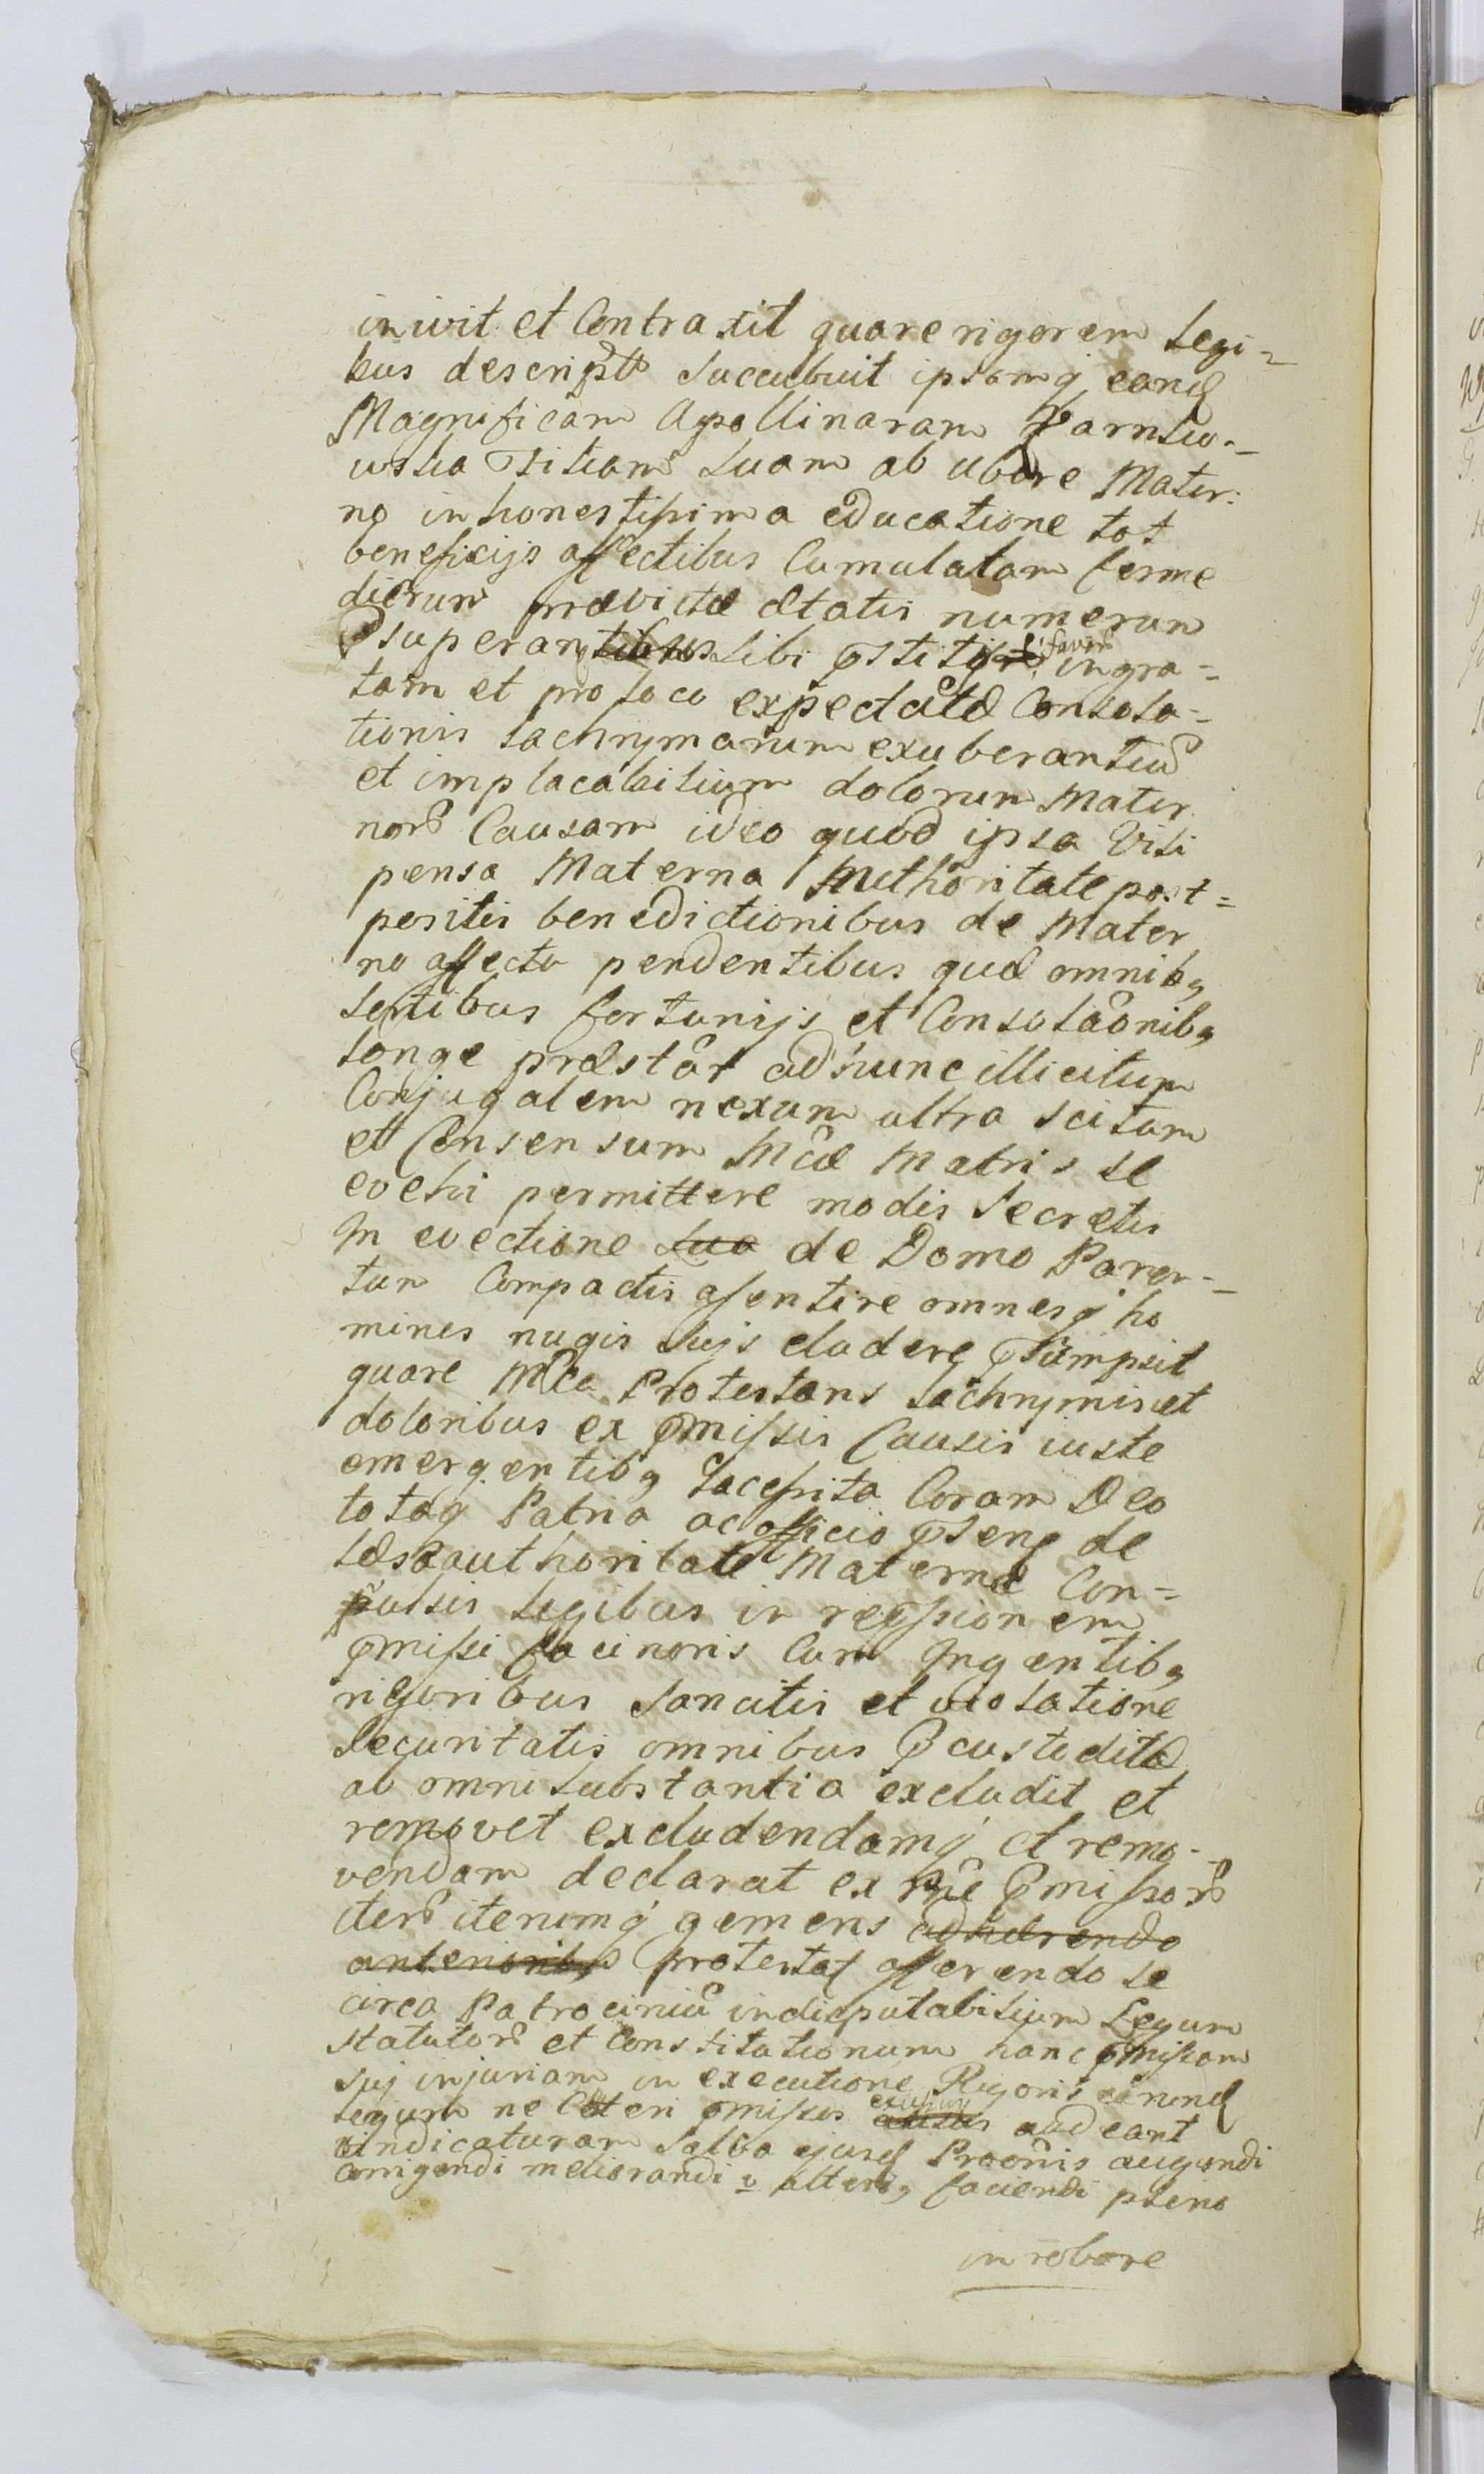 inivit et Contraxit quare rigorem Legi=
bus descript succubuit ipsamq eand
Magnificam Apollinaram
Filiam Suam ab ubere Mater:
no in honestissima educatione tot
beneficijs affectibus Cumulatam ferme
dierum prævictæ ætatis numerum
superan sibi ingra=
tam et pro loco expectatæ Consola=
tionis Lachrymarum exuberantiũ
et implacabilium dolorum Mater
norũ Causam ideo quod ipsa Vili
pensa Materna Authoritate post=
positis benedictionibus de Mater
no affectu pendentibus quæ omnibq
fortunijs et Consolaõnibq
longe præstãt ad nunc illicitum
Conjugalem nexum ultra scitum
et Consensum Mcæ Matris se
evehi permittere modis Secretis
In evectione sua de Domo Paren=
tum Compactis assentire omnesq ho
mines nugis suijs eludere psumpsit
quare Mca Protestans Lachrymis et
doloribus ex pmissis Causis iuste
emergentibq Lacessita Coram Deo
totaq Patria ac officio pseng de
læsa authoritate Maternæ Con=
pulsis legibus in repssionem
pmissi facinoris Cum Ingentibq
rigoribus Sancitis et violatione
Securitatis omnibus pcustoditæ
ab omni substantia excludit et
removet excludendamq et remo=
vendam declarat ex rñe pmissorũ
iterũ iterumq gemens adhærendo
anterioribq protestat offerendo se
circa Patrociniũ indisputabilium Legum
statutorũ et Constitutionum hanc pmissam
suj injuriam in executione Rigoris earund
legum ne Cæteri pmissis ausus audeant
vindicaturam Salva ejusd Protõnis augendi
corrigendi meliorandi v alteriq faciendi pleno
in robore